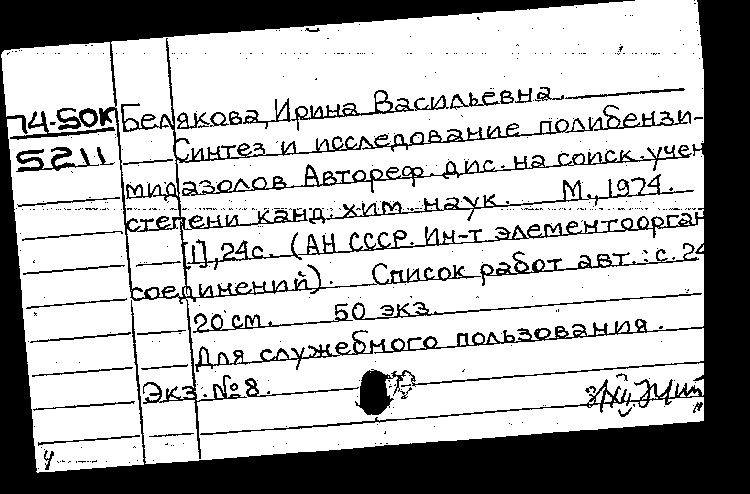 74-50К Белякова, Ирина Васильевна.
5211 Синтез и исследование полибензи-
мидазолов. Автореф. дис. на соиск. учен
степени канд. хим. наук. М., 1974.
[1], 24с. (АН СССР. Ин-т элементоорган
соединений). Список работ авт.: с. 24
20 см. 50 экз.
Для служебного пользования.
Экз. №8.